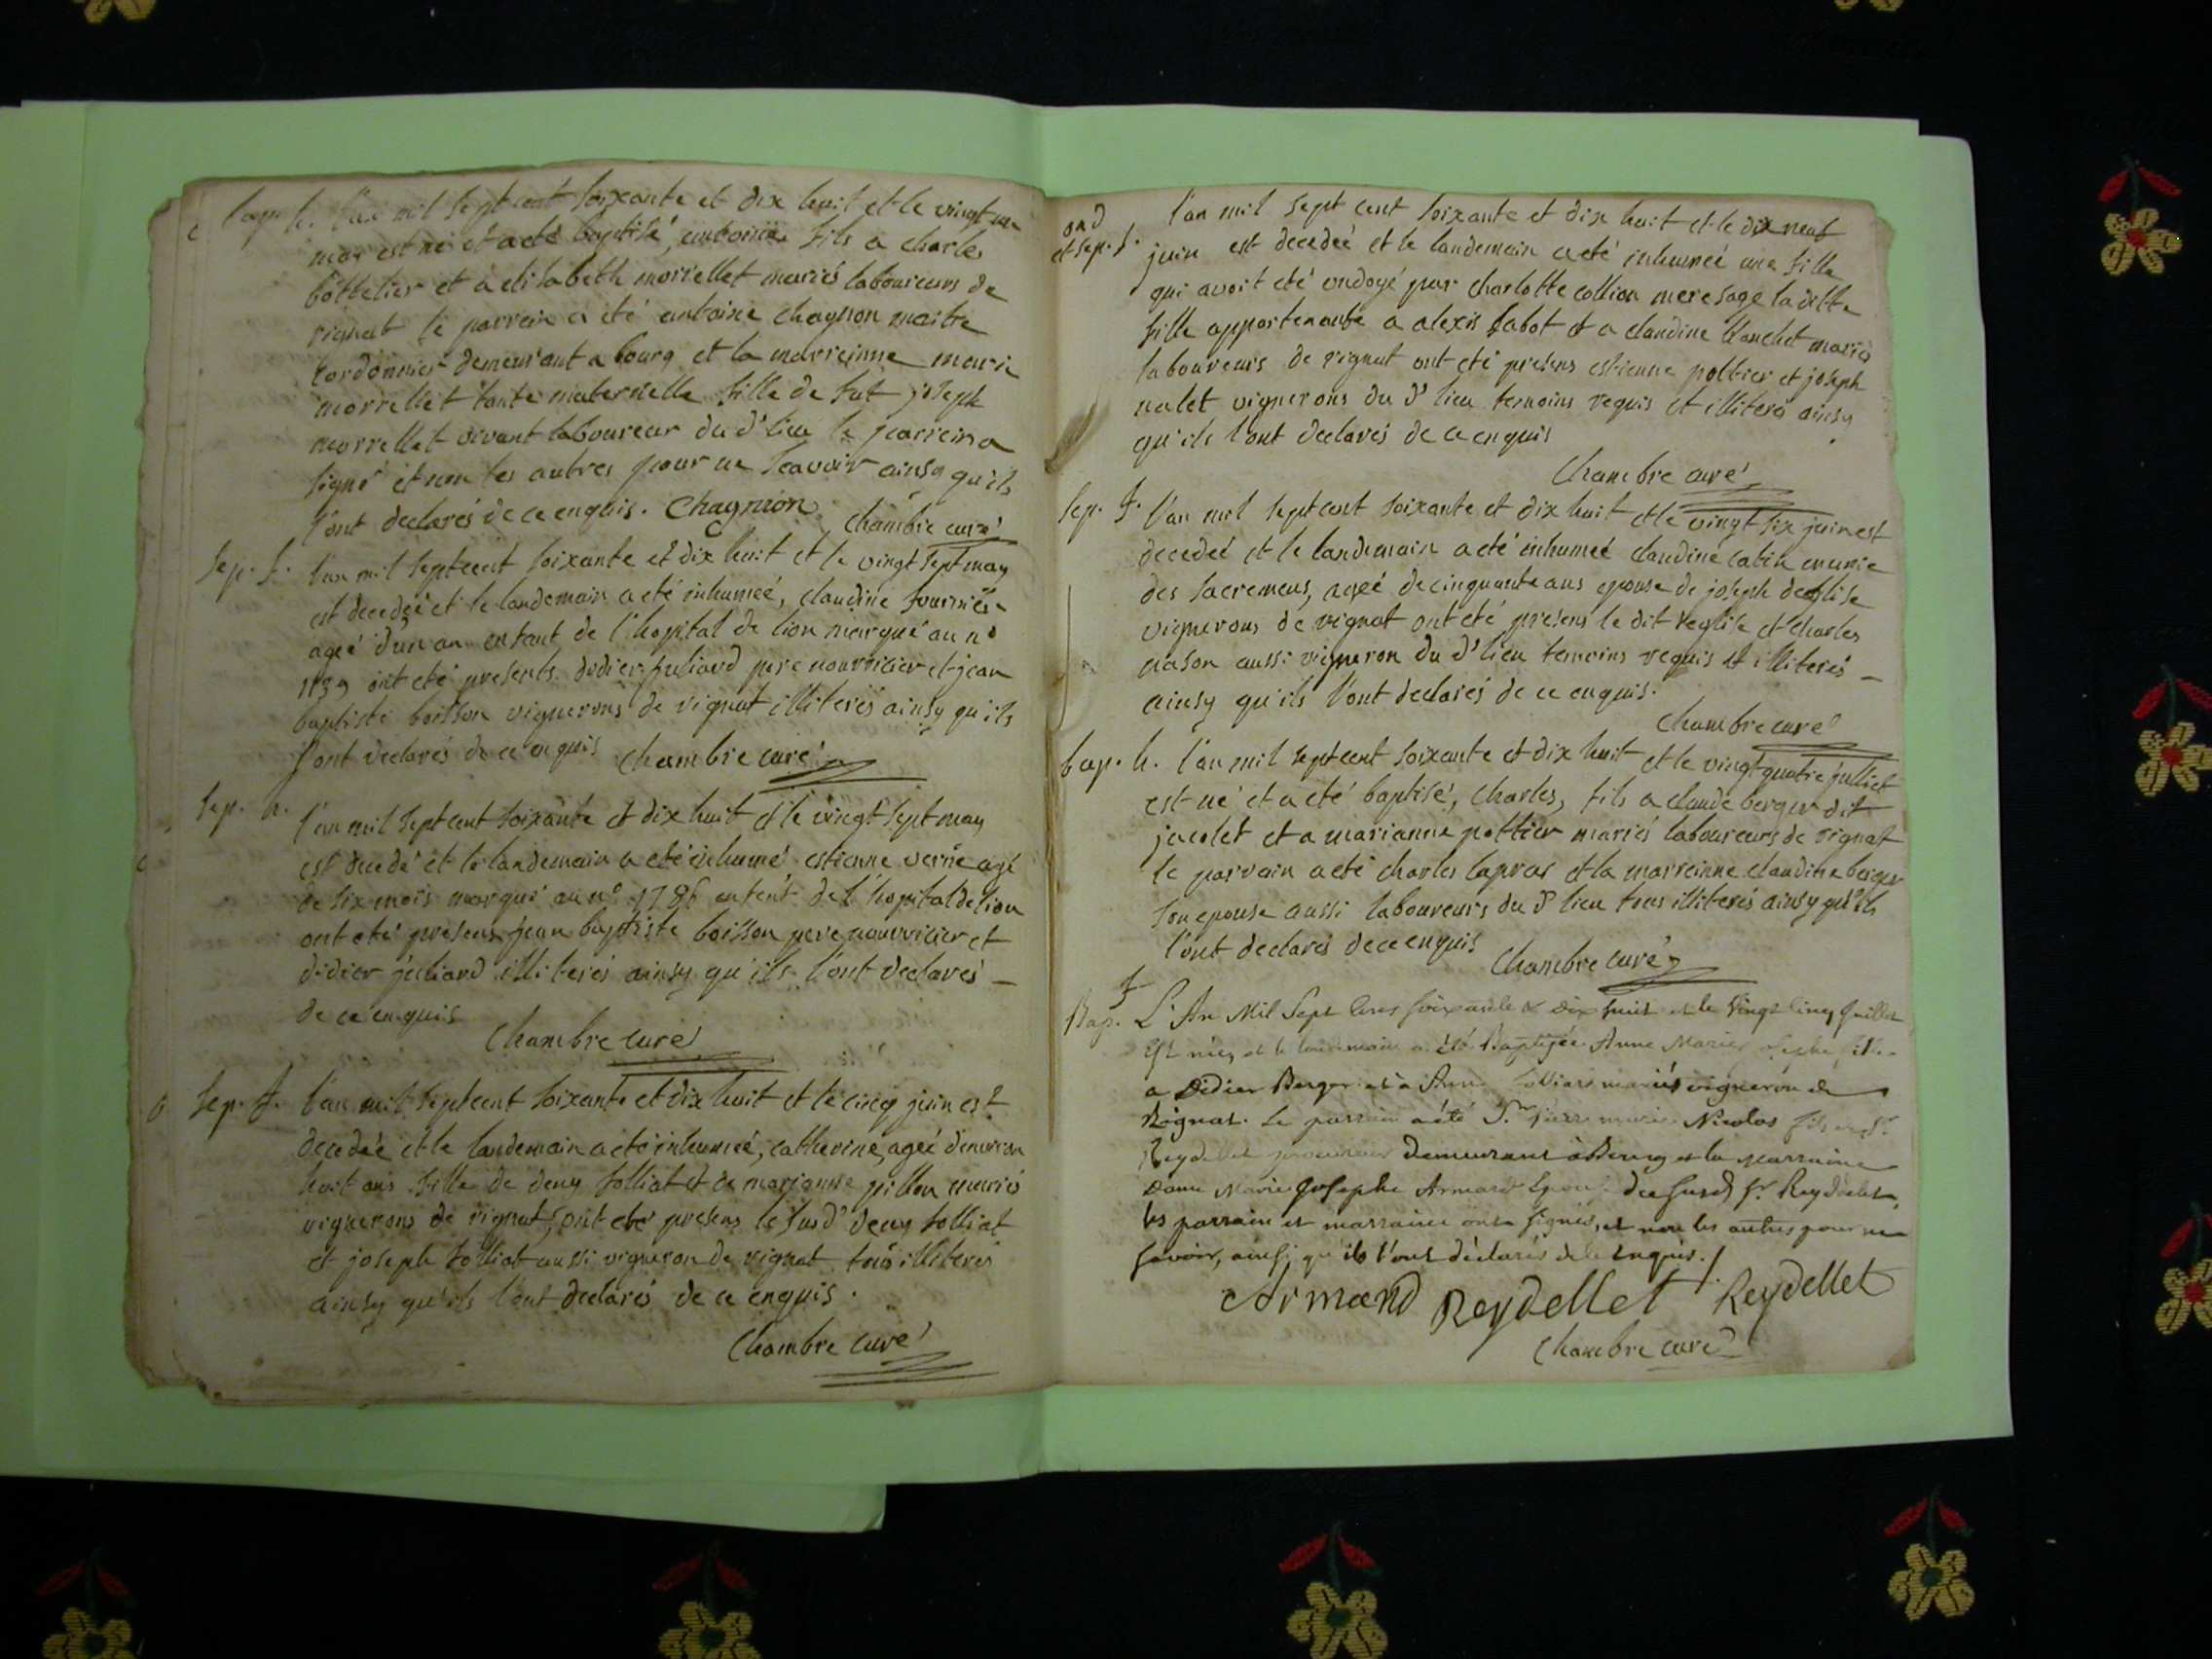 bap. h. l'an mil sept cent soixante et dix huit et le vingt un
may est né et a eté baptisé, antoine fils a charles
bottelier et a elisabeth morrellet mariés laboureurs de
rignat le parrein a été antoine chagnon maitre
cordonnier demeurant a bourg et la marreinne marie
morrellet tante maternelle fille de fut joseph
morrellet vivant laboureur du d' lieu le parrein a
signé et non les autres pour ne scavoir ainsy qu'ils
l'ont declarés de ce enquis. Chagnion
Chambre curé
sep. f. l'an mil sept cent soixante et dix huit et le vingt sept may
est decedeé et le landemain a eté inhumeé, claudine
ageé d'un an enfant de l'hopital de lion marqué au n°
1139 ont eté presents didier juliard pere nourricier et jean
baptiste boisson vignerons de rignat illiterés ainsy qu'ils
l'ont declarés de ce enquis Chambre curé
sep. h. l'an mil sept cent soixante et dix huit et le vingt sept may
est decedé et le landemain a eté inhumé estienne verne agé
de six mois marqué au n° 1786 enfent de l'hopital de lion
ont eté presens jean baptiste boisson pere nourricier et
didier juliard illiterés ainsy qu'ils l'ont declarés
de ce enquis
Chambre curé
sep. f. l'an mil sept cent soixante et dix huit et le cinq juin est
decedeé et le landemain a eté inhumeé, catherine, ageé d'environ
huit ans fille de deny folliat et de marianne pillon mariés
vignerons de rignat, ont eté presens le susd' deny folliat
et joseph folliat aussi vigneron de rignat tous illiterés
ainsy qu'ils l'ont declarés de ce enquis.
Chambre curé
ond l'an mil sept cent soixante et dix huit et le dix neuf
et sep. f. juin est decedeé et le landemain a eté inhumeé une fille
qui avoit eté ondoyé par charlotte collion mere sage la ditte
fille appartenante a alexis fabot et a claudine blanchet mariés
laboureurs de rignat ont eté presens estienne pottier et joseph
nalet vignerons du d' lieu temoins requis et illiterés ainsy
qu'ils l'ont declarés de ce enquis
Chambre curé
sep. f. l'an mil sept cent soixante et dix huit et le vingt six juin est
decedeé et le landemain a eté inhumeé claudine catin munie
des sacremens, ageé de cinquante ans epouse de joseph deglise
vignerons de rignat ont eté presens le dit deglise et charles
nason aussi vigneron du d' lieu temoins requis et illiterés
ainsy qu'ils l'ont declarés de ce enquis.
Chambre curé
bap. h. l'an mil sept cent soixante et dix huit et le vingt quatre julliet
est né et a eté baptisé, Charles, fils a claude berger dit
jacolet et a marianne pottier mariés laboureurs de rignat
le parrain a eté charles lapras et la marreinne claudine berger
son epouse aussi laboureurs du d' lieu tous illiterés ainsy qu'ils
l'ont declarés de ce enquis Chambre curé
f
Bap. L'An Mil Sept Cens soixante & dix huit et le Vingt Cinq Juillet
Est née, et le lendemain a été Baptizée Anne Marie fille
a Didier Berger et à Anne mariés vigneron de
Rignat. Le parrain a été S.r Pierre marie Nicolas fils
Reydellet procureur demeurant à Bourg et la Marraine
Dame Marie Josephe Armand Epouse du susd. S.r Reydellet,
les parrain et marraine ont signés, et non les autres pour ne
savoir, ainsi qu'ils l'ont déclarés de ce Enquis./.
Armand Reydellet Reydellet
Chambre curé